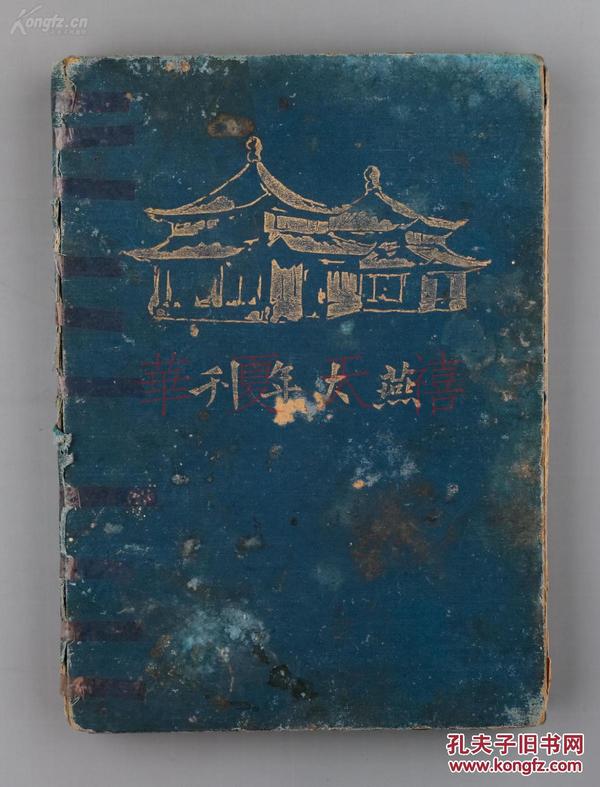 Kongfz.cn
燕大年刊
華夏天禧
孔夫子旧书网
www.kongfz.com